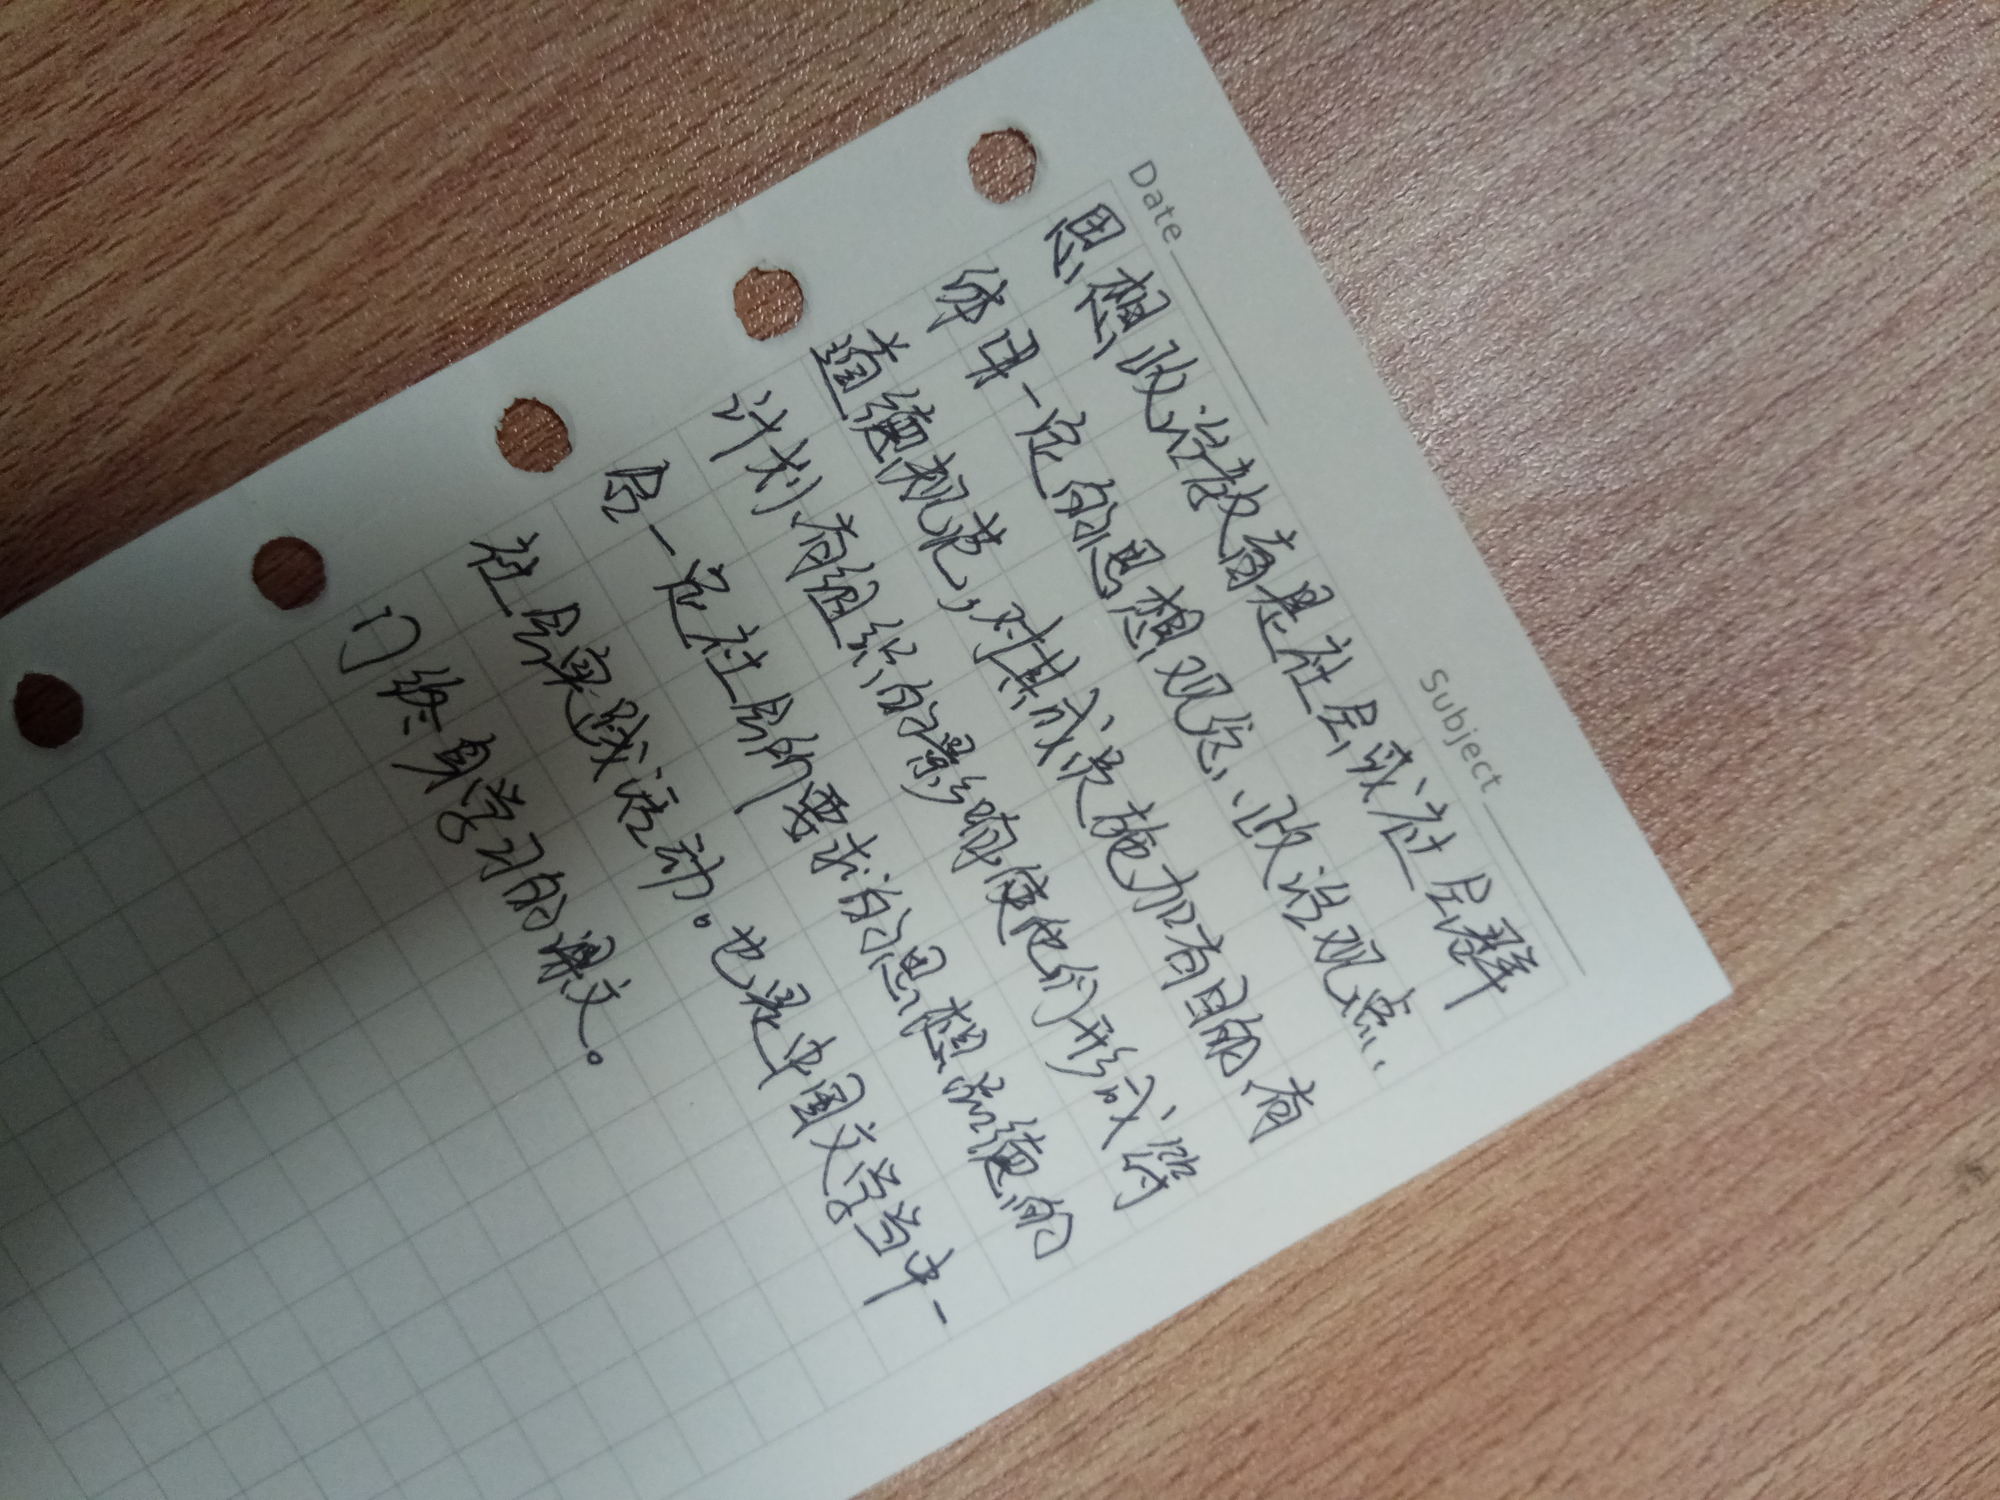 Date Subject
思想政治教育是社会或社会群
体用一定的思想观念、政治观点、
道德规范,对其成员施加有目的、有
计划、有组织的影响,使他们形成符
合一定社会所要求的思想品德的
社会实践活动。也是中国文学当中一
门终身学习的课文。